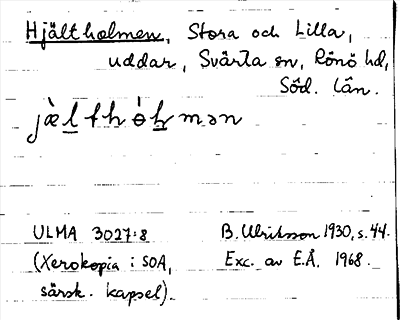 Hjältholmen, Stora och Lilla,
uddar, Svärta sn, Rönö hd,
Söd. län.
jæ̀l̲thɵ́l̲mən
ULMA 3027:8
(Xerokopia i SOA,
särsk. kapsel).
B. Ulriksson 1930, s. 44.
Exc. av E.Å. 1968.